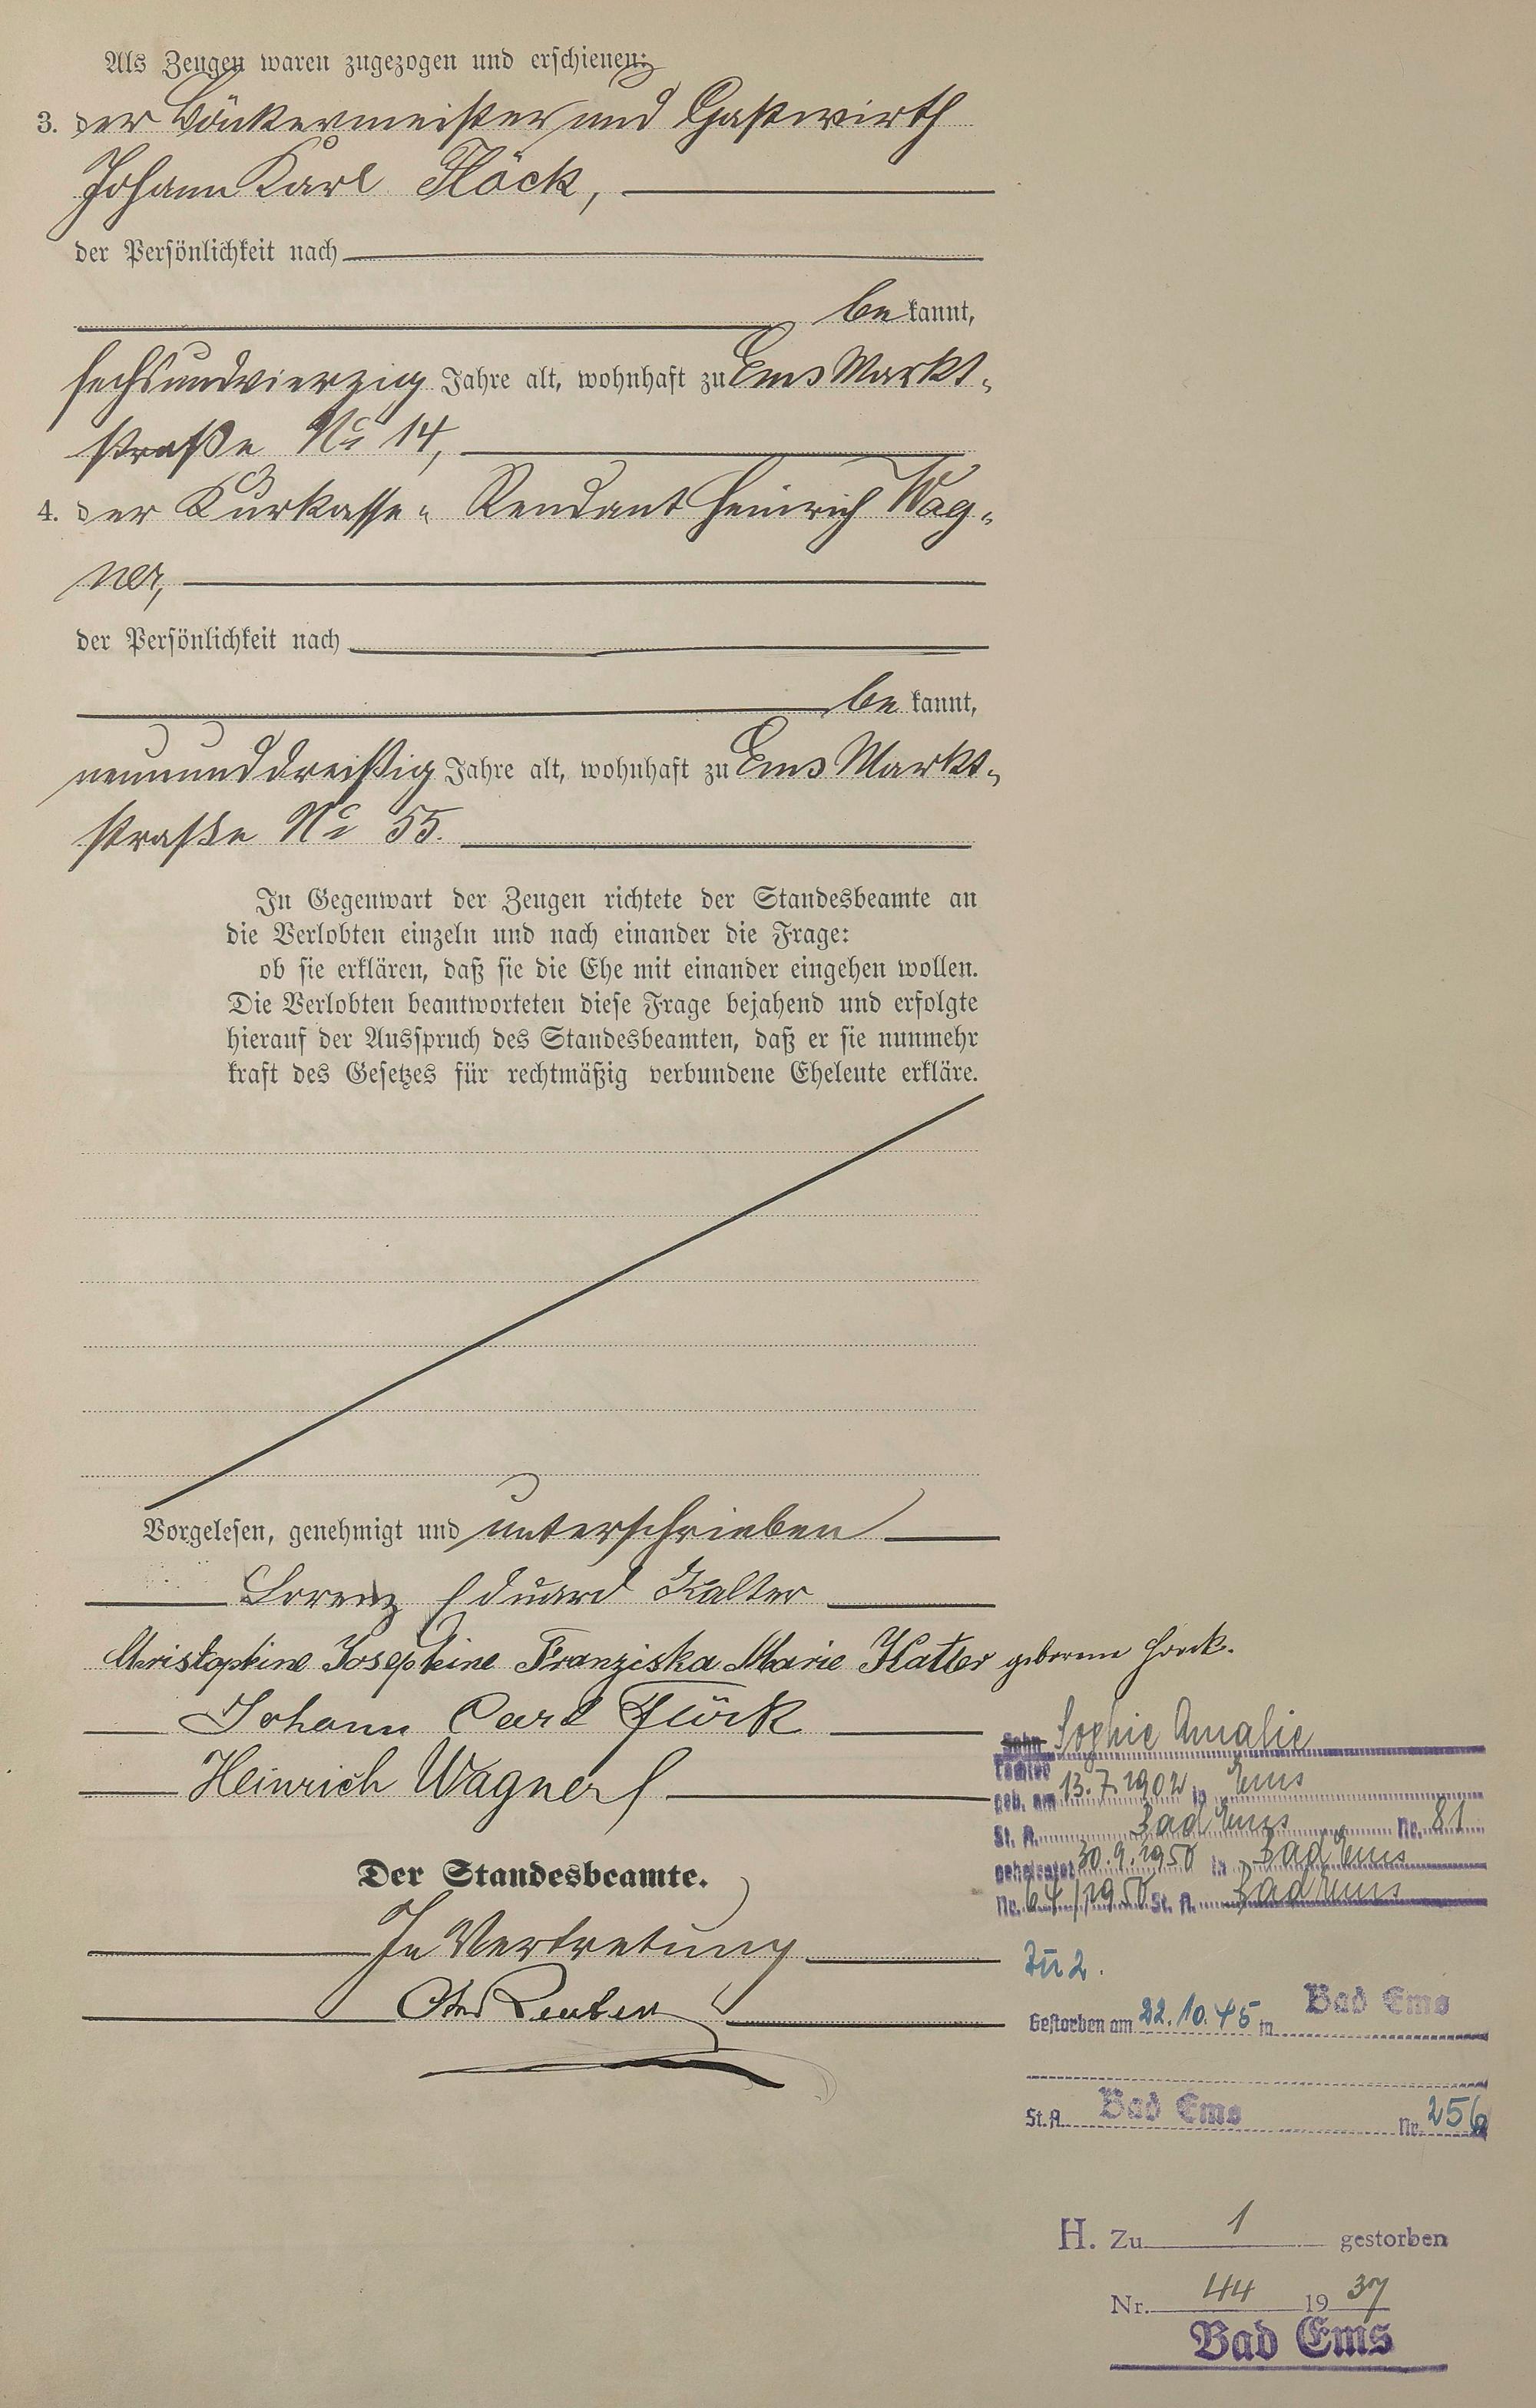 Als Zeugen waren zugezogen und erschienen:
3. der Bäckermeister und Gastwirth
Johann Karl Flöck,
der Persönlichkeit nach
be kannt,
sechsundvierzig Jahre alt, wohnhaft zu Ems Markt-
straße No 14,
4. der Kurkasse-Rendant Heinrich Wag-
ner,
der Persönlichkeit nach
be kannt,
neununddreißig Jahre alt, wohnhaft zu Ems Markt-
straße No 55.
In Gegenwart der Zeugen richtete der Standesbeamte an
die Verlobten einzeln und nach einander die Frage:
ob sie erklären, daß sie die Ehe mit einander eingehen wollen.
Die Verlobten beantworteten diese Frage bejahend und erfolgte
hierauf der Ausspruch des Standesbeamten, daß er sie nunmehr
kraft des Gesetzes für rechtmäßig verbundene Eheleute erkläre.
Vorgelesen, genehmigt und unterschrieben
Lorenz Eduard Kalter
Christophine Josephine Franziska Marie Kalter geborene
Johann Carl Flöck
Heinrich Wagner
Sohn Sophie Amalie
Tochter
geb. am 13.7.1902 in Ems
St. A. Bad Ems Nr. 81
geheiratet 30.9.1950 in Bad Ems
Nr. 64/1950 St. A. Bad Ems
Der Standesbeamte.
In Vertretung
Zu 2.
Gestorben am 22.10.45 in Bad Ems
St. A. Bad Ems Nr. 256
H. Zu 1 gestorben
Nr. 44 1937
Bad Ems